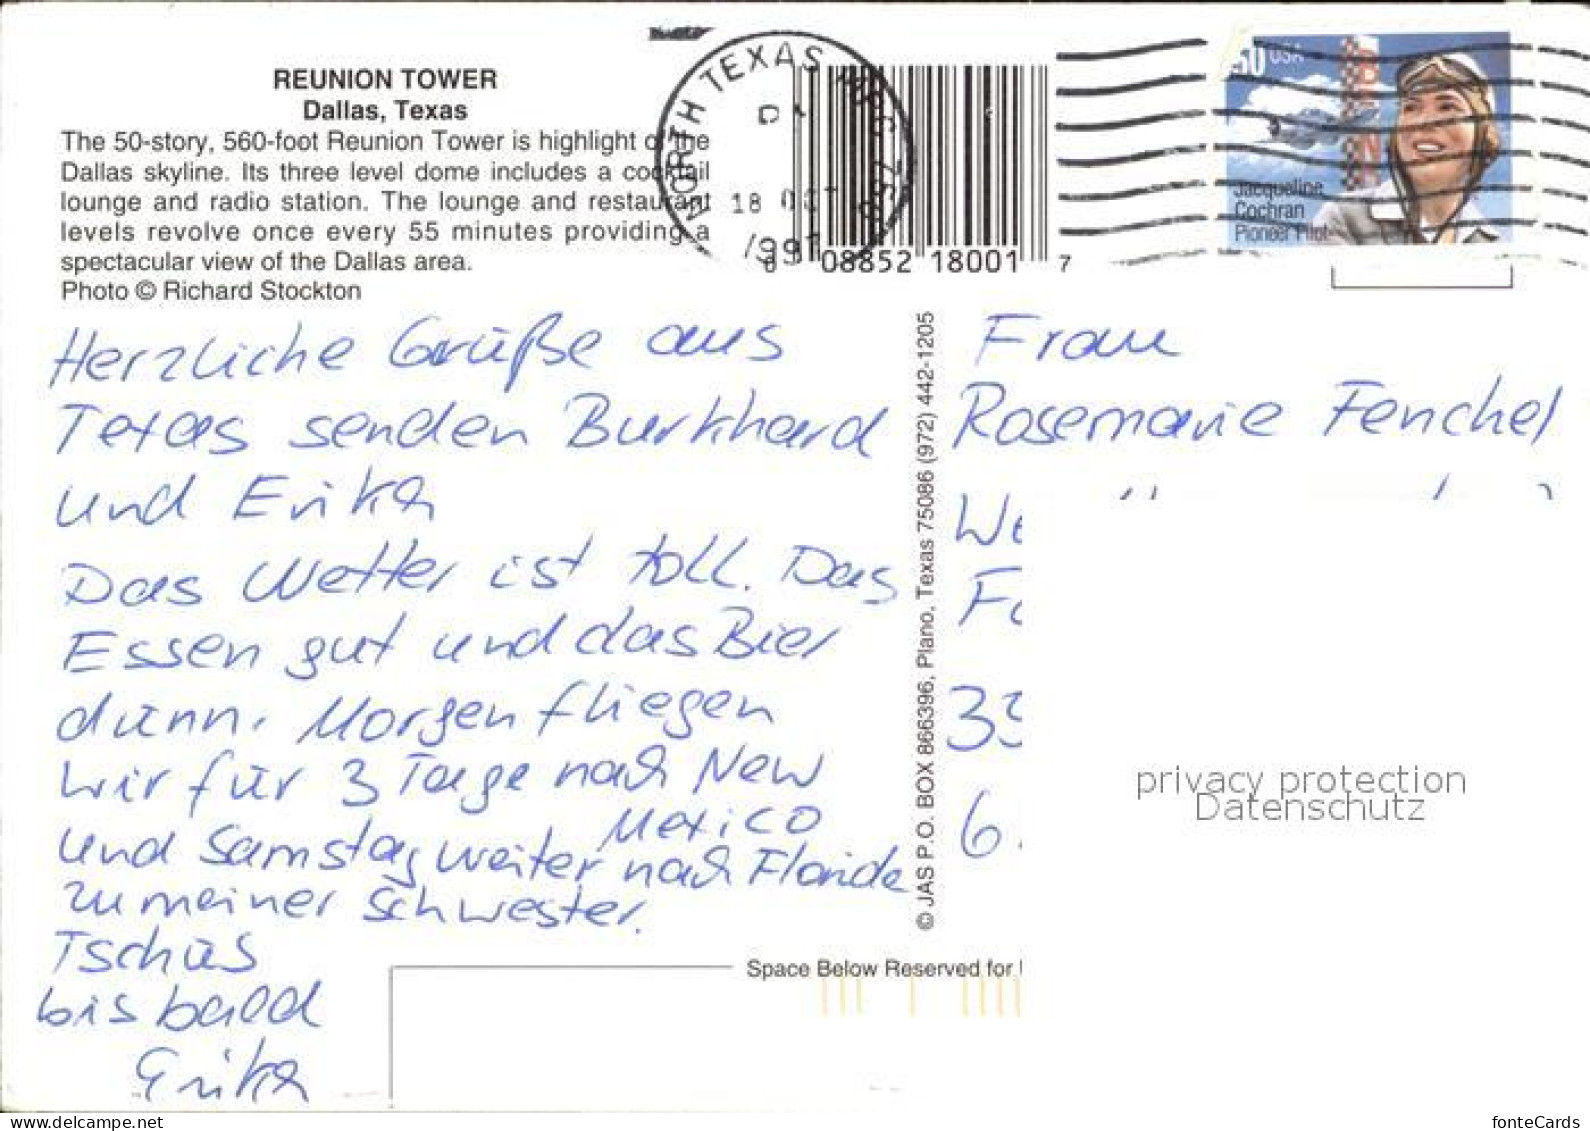 REUNION TOWER
Dallas, Texas
The 50-story, 560-foot Reunion Tower is highlight of the
Dallas skyline. Its three level dome includes a cocktail
lounge and radio station. The lounge and restaurant
levels revolve once every 55 minutes providing a
spectacular view of the Dallas area.
Photo © Richard Stockton
NORTH TEXAS
18 OCT
0 08852 18001 7
50 USA
Jacqueline
Cochran
Pioneer Pilot
Herzliche Grüße aus
Texas senden Burkhard
und Erika
Das Wetter ist toll. Das
Essen gut und das Bier
dünn. Morgen fliegen
wir für 3 Tage nach New
Mexico
und Samstag weiter nach Florida
zu meiner Schwester.
Tschüs
bis bald
Erika
© JAS P.O. BOX 866396, Plano, Texas 75086 (972) 442-1205
Frau
Rosemarie Fenchel
33
6
privacy protection
Datenschutz
Space Below Reserved for
www.delcampe.net
fonteCards